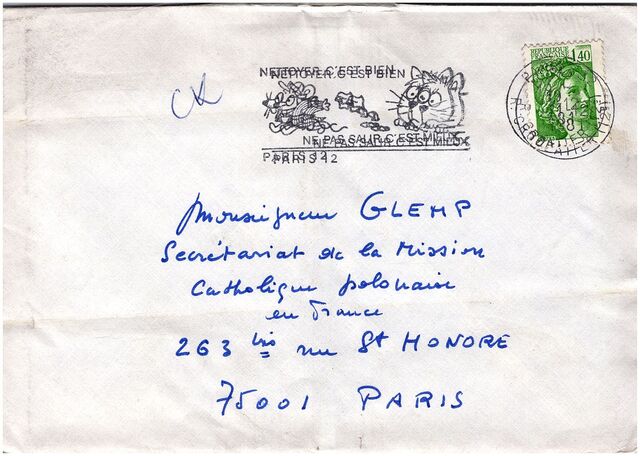 CK
NETTOYER C'EST BIEN
NETTOYER C'EST BIEN
NE PAS SALIR C'EST MIEUX
NE PAS SALIR C'EST MIEUX
PARIS 12
PARIS 12
REPUBLIQUE
FRANÇAISE
1,40
PARIS
Monseigneur GLEMP
Secrétariat de la Mission
Catholique polonaise
en France
263 bis rue St HONORE
75001 PARIS